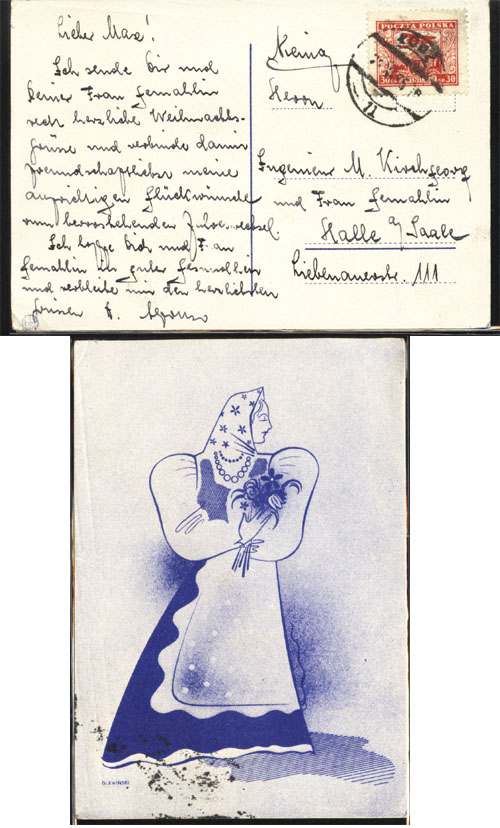 Lieber Max!
Ich sende dir und
deiner Frau Gemahlin
recht herzliche Weihnachts-
grüsse und verbinde damit
freundschaftlichst meine
aufrichtigen Glückwünsche
zum bevorstehenden Jahreswechsel.
Ich hoffe dich und Frau
Gemahlin in guter Gesundheit
und verbleibe mit den herzlichsten
Grüssen
POCZTA POLSKA
30 30
11
Herrn
Ingenieur M. Kirchgeorg
und Frau Gemahlin
Halle a/Saale
Liebenauerstr. 111